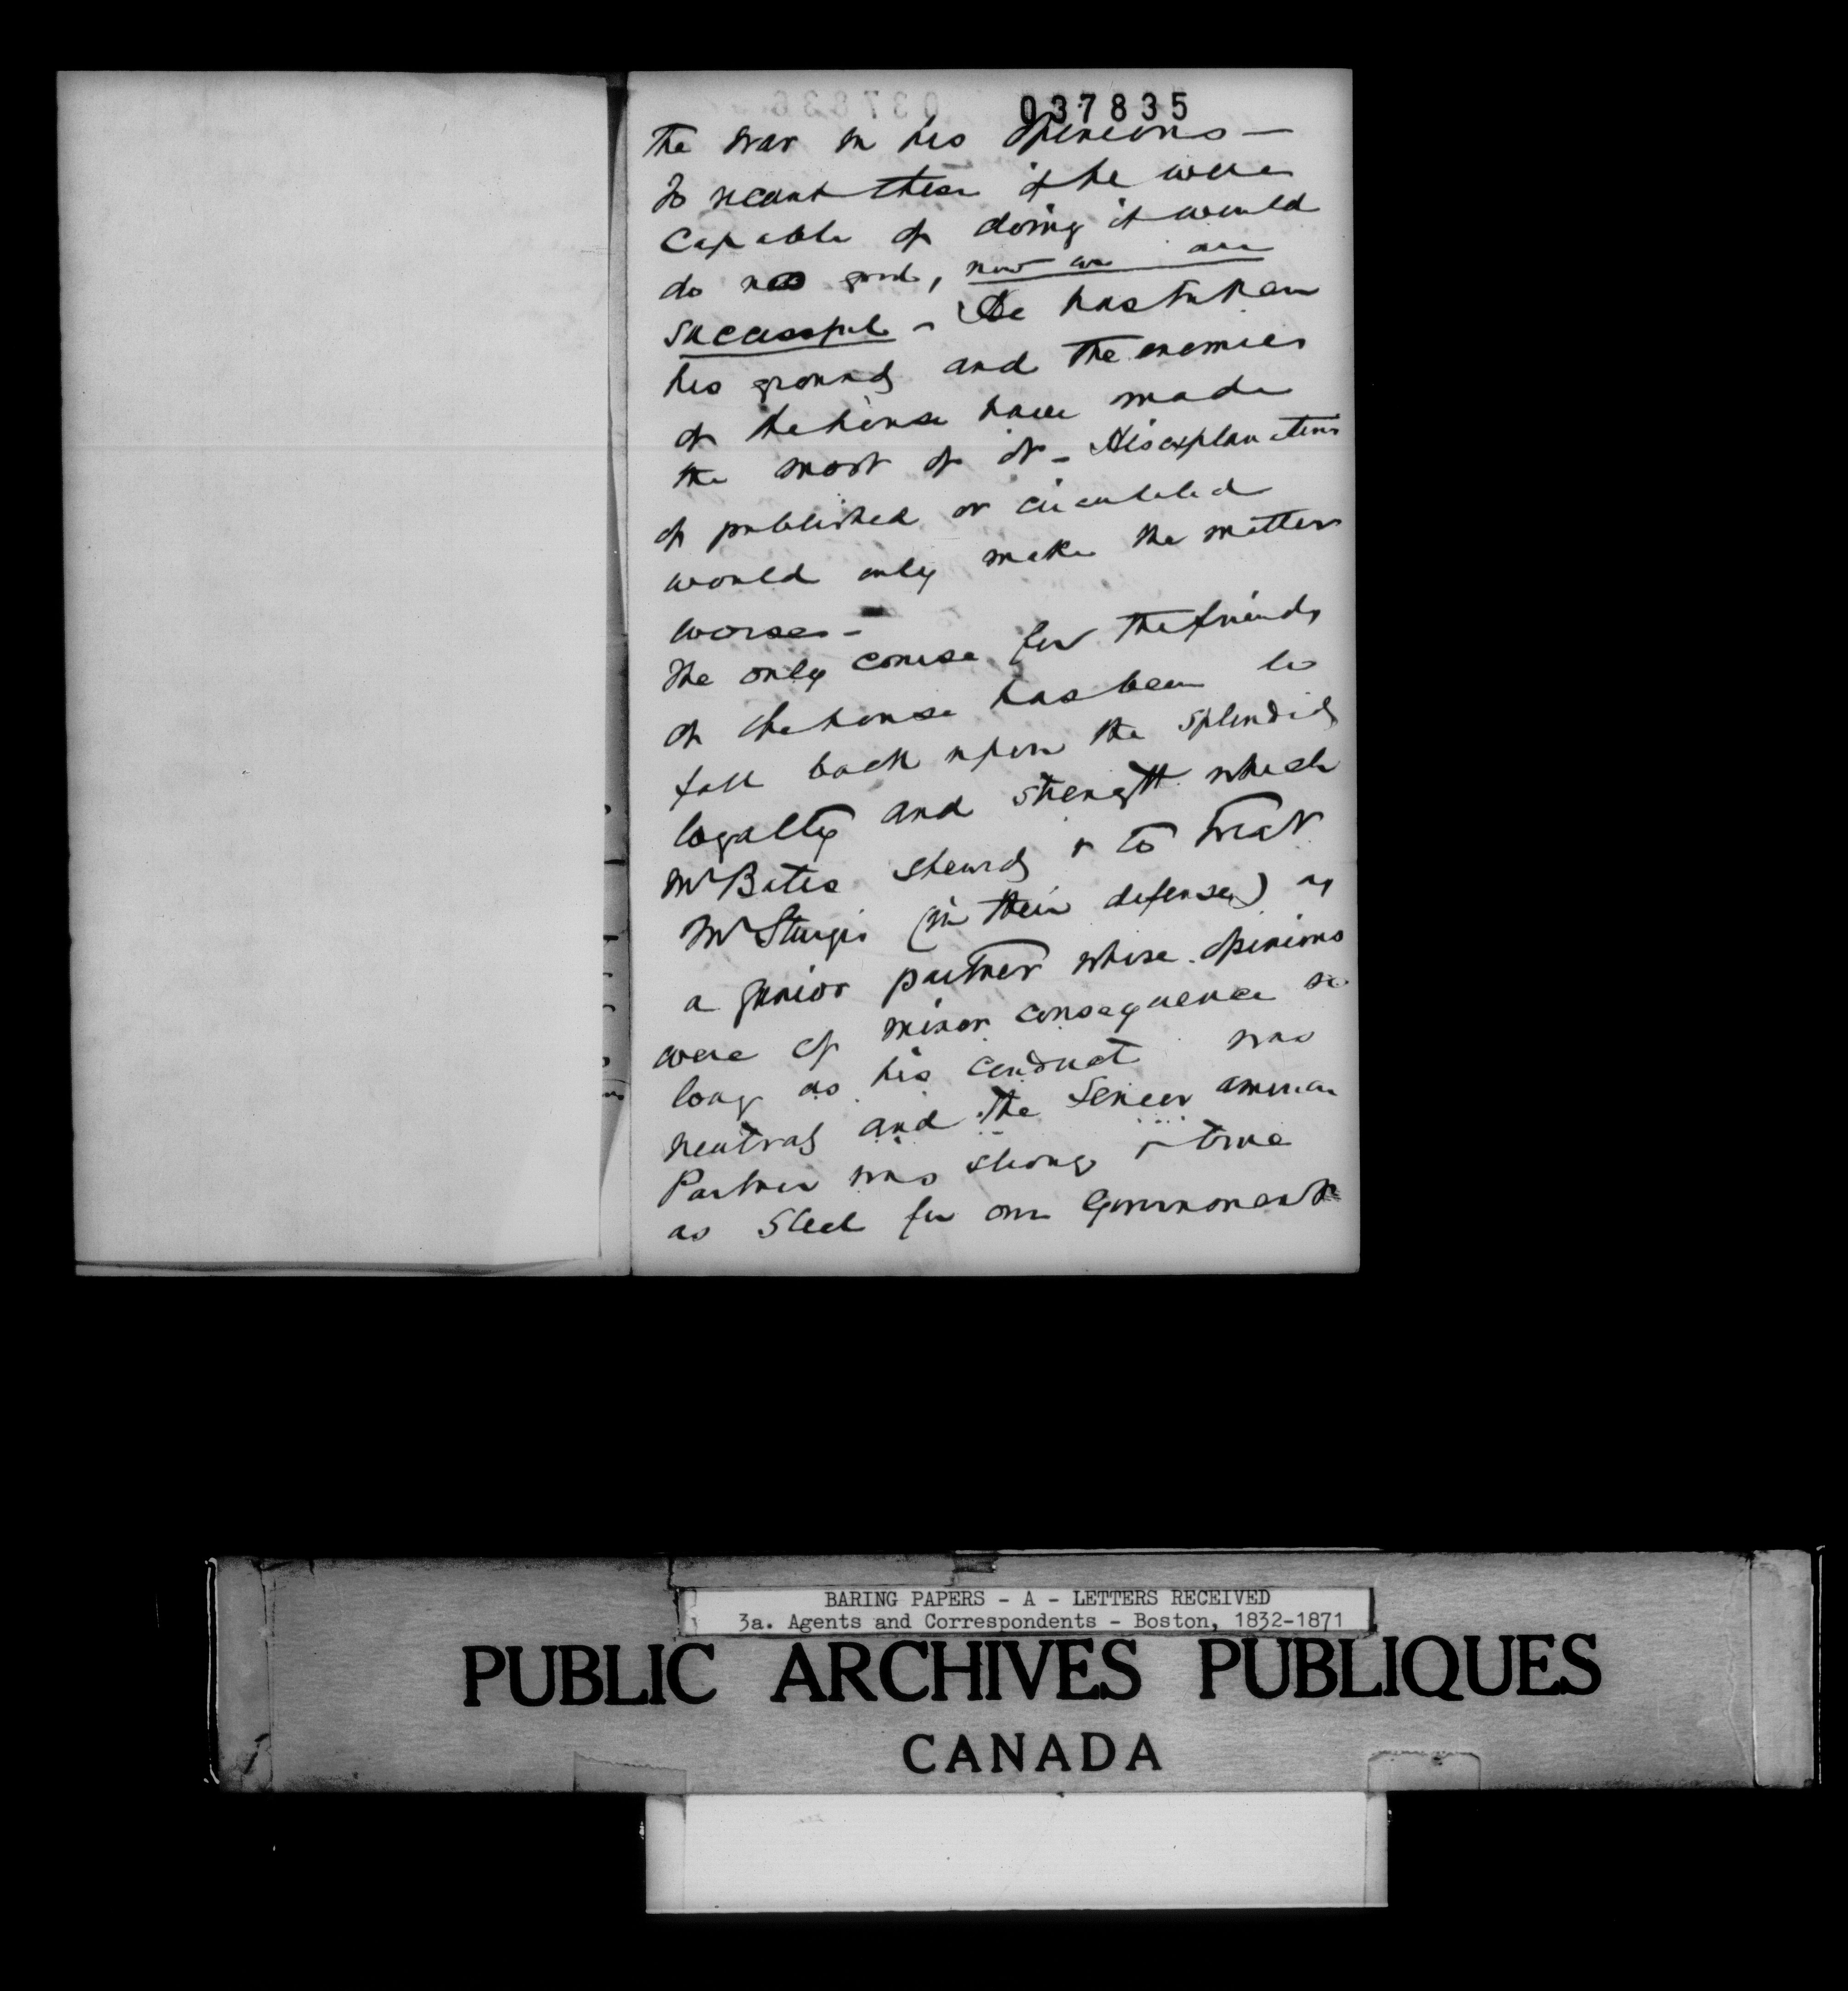 037835
The war in his opinions —
To recant these if he were
Capable of doing it would
do no good, now we are
successful - He has taken
his ground and the enemies
of the house have made
the most of it - His explanations
if published or circulated
would only make the matter
worse -
The only course for the friends
of the house has been to
fall back upon the splendid
loyalty and strength which
Mr Bates shewed & to treat
Mr Sturgis (in their defense) as
a junior partner whose opinions
were of minor consequence so
long as his conduct was
neutral and the Senior American
Partner was strong & true
as Steel for our Government
BARING PAPERS - A - LETTERS RECEIVED
3a. Agents and Correspondents - Boston, 1832-1871
PUBLIC ARCHIVES PUBLIQUES
CANADA